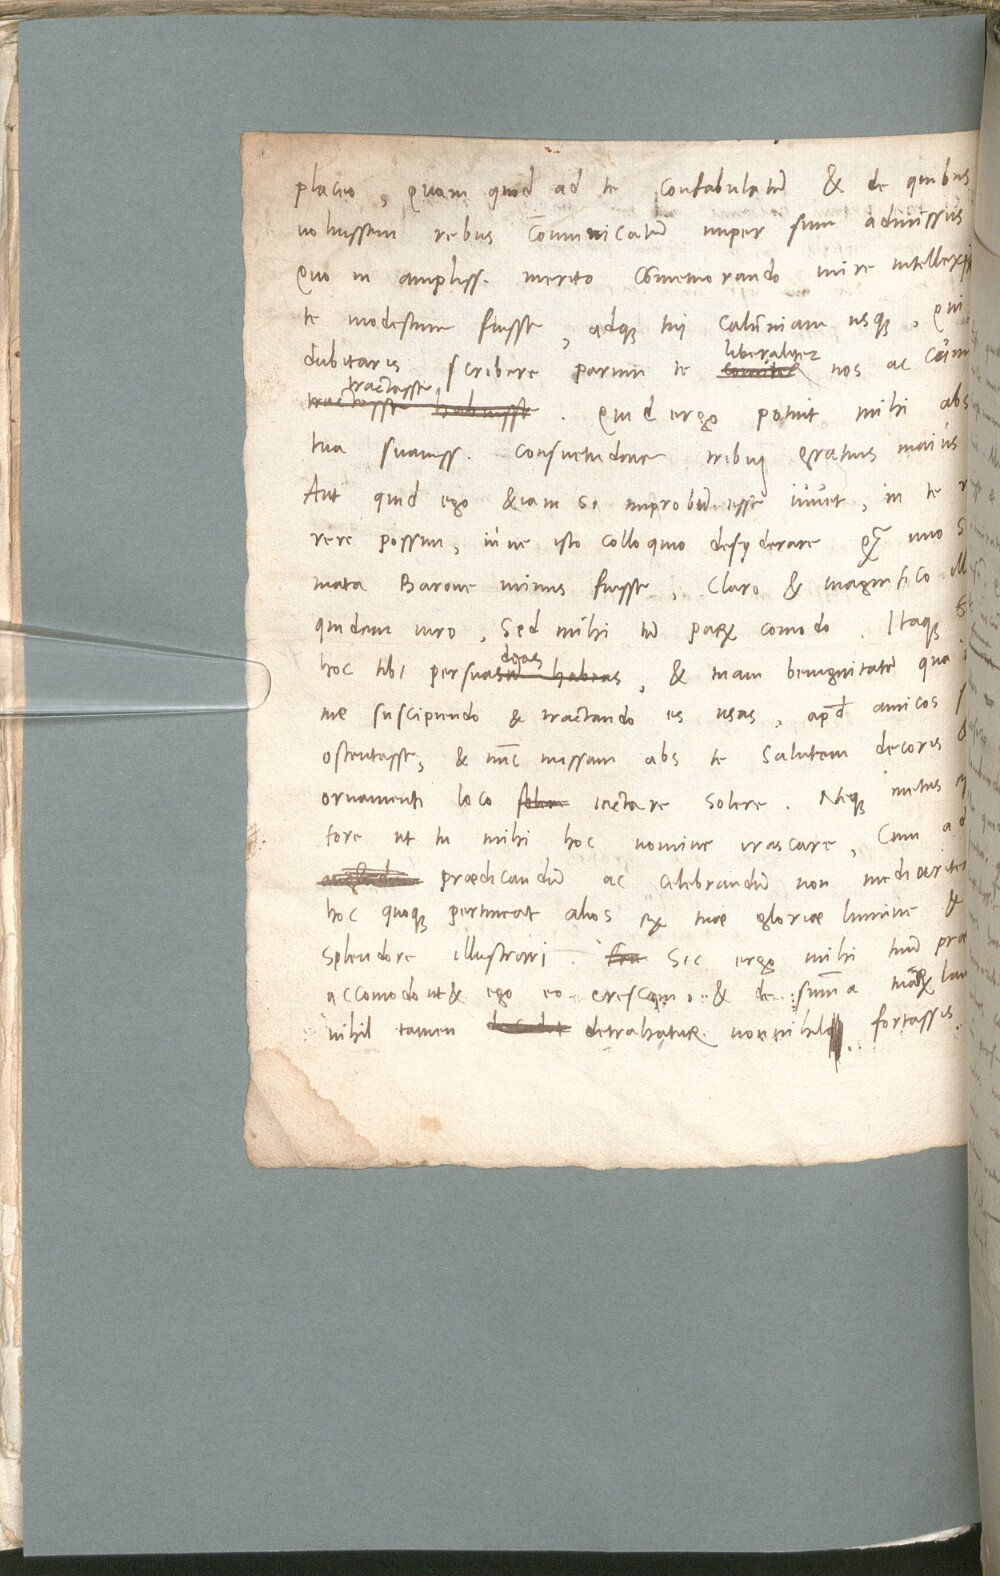 placeo, quam quod ad te confabulatū & de quibus
uoluissem rebus cōmunicatū nuper sum admissus
Quo in ampliss. merito cōmemorando mire intellexi
te modestum fuisse, adq̧ tui calūniam usq̧, qui
dubitaris scribere parum te liberaliter nos ac
tractasse. Quid ergo potuit mihi abs
tua suauiss. consuetudine tribui gratius maius
Aut quid ego &iam si improbū esse iuuet, in te
rere possim, in ue isto colloquio desyderare uno
mata Barone minus fuisse, Claro & magnifico
quidem uiro, Sed mihi tū parū comodo. Itaq̧
hoc tibi persuadeas, & tuam benignitatē qua
me suscipiendo & tractando es usus, apd̄ amicos
ostentasse, & nūc missam abs te Salutem decoris
ornamenti loco iactare solere. Neq̧ metus
fore ut tu mihi hoc nomine irascare, Cum ad
prædicandū ac celebrandū non mediocriter
hoc quoq̧ pertineat alios ex tuæ gloriæ lumine &
splendore illustrari. Sic ergo mihi tuū
accomodout& ego eo crescam, & de sum̄a tuarū
nihil tamen detrahatur fortassis.